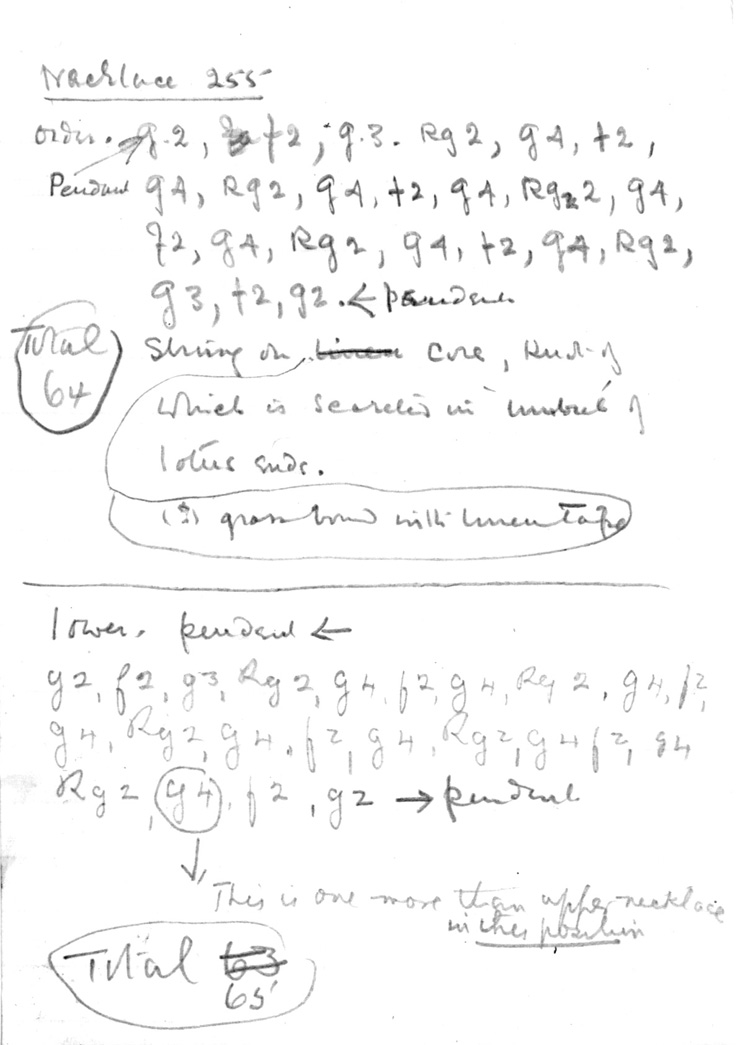 Necklace 255
Order. g.2, f2, g.3. Rg2, g4, f2,
Pendant g4, Rg2, g4, f2, g4, Rg2, g4,
f2, g4, Rg2, g4, f2, g4, Rg2,
g3, f2, g2. ← pendant
Total 64
Strung on linen core, knot of
which is in umbel of
lotus ends.
(?) grass bound with linen Tape
lower. pendant ←
g2, f2, g3, Rg2, g4, f2, g4, Rg2, g4, f2,
g4, Rg2, g4, f2, g4, Rg2, g4 f2, g4
Rg2, g4, f2, g2 → pendant
↓
This is one more than upper necklace
in this position
Total 63
65